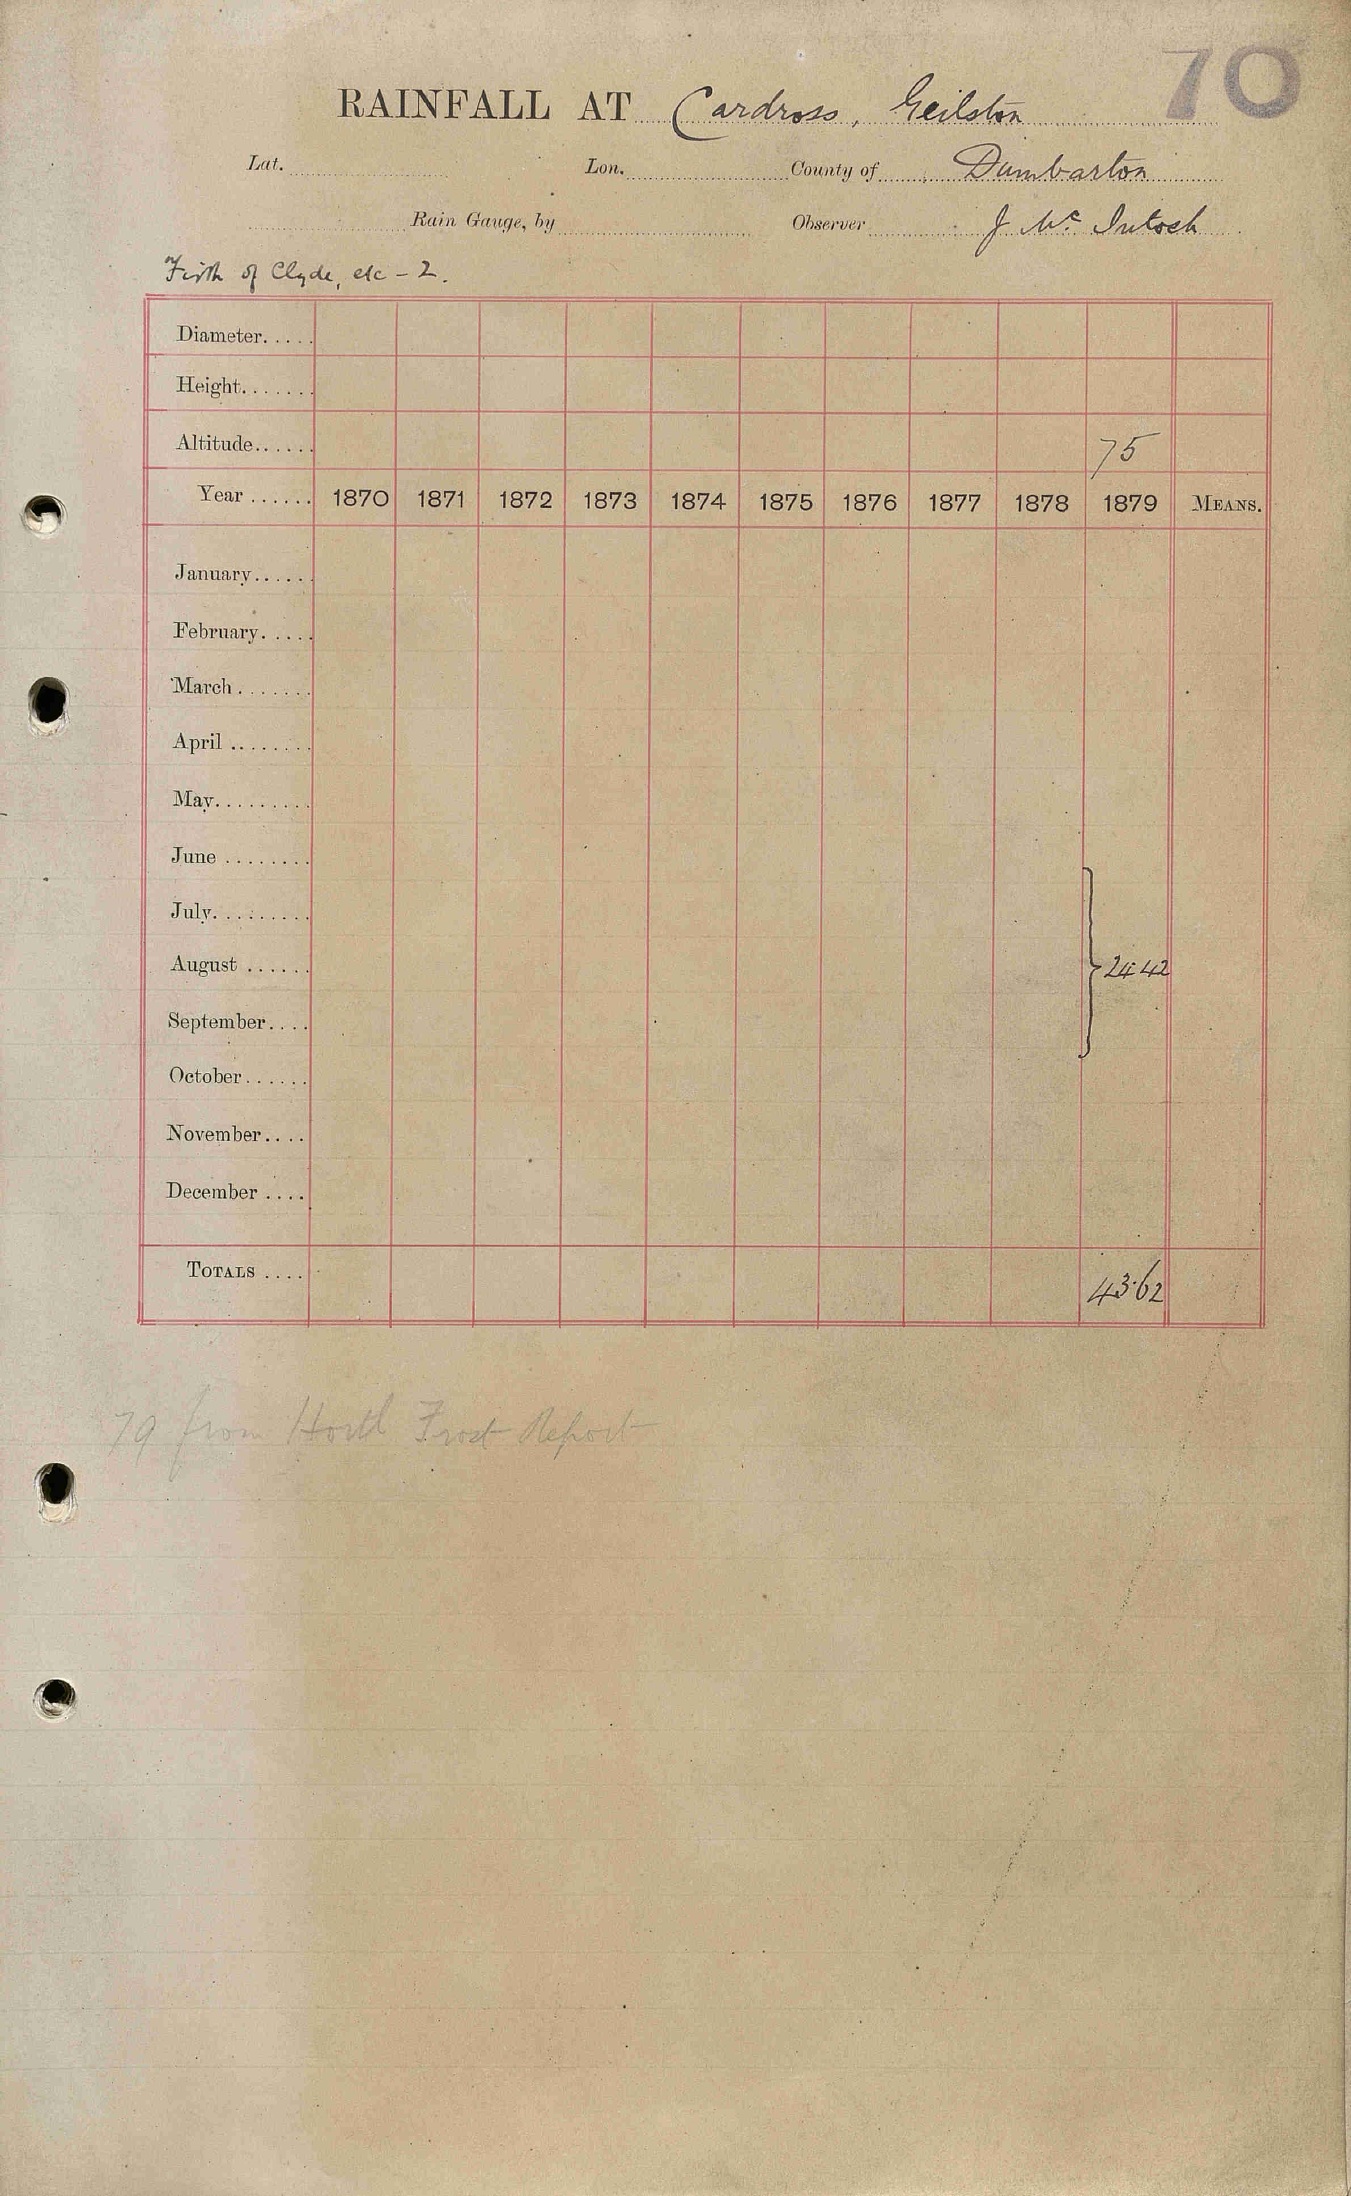 70
RAINFALL AT Cardross, Geilston
Lat. Lon. County of Dumbarton
Rain Gauge, by Observer J McIntosh
Firth of Clyde, etc - 2.
Diameter.....
Height.......
Altitude...... 75
Year ...... 1870 1871 1872 1873 1874 1875 1876 1877 1878 1879 MEANS.
January......
February.....
March.......
April ........
May.........
June ........
July.........
August ...... } 24 42
September....
October......
November....
December ....
TOTALS .... 43.62
79 from Hortl Frost Report